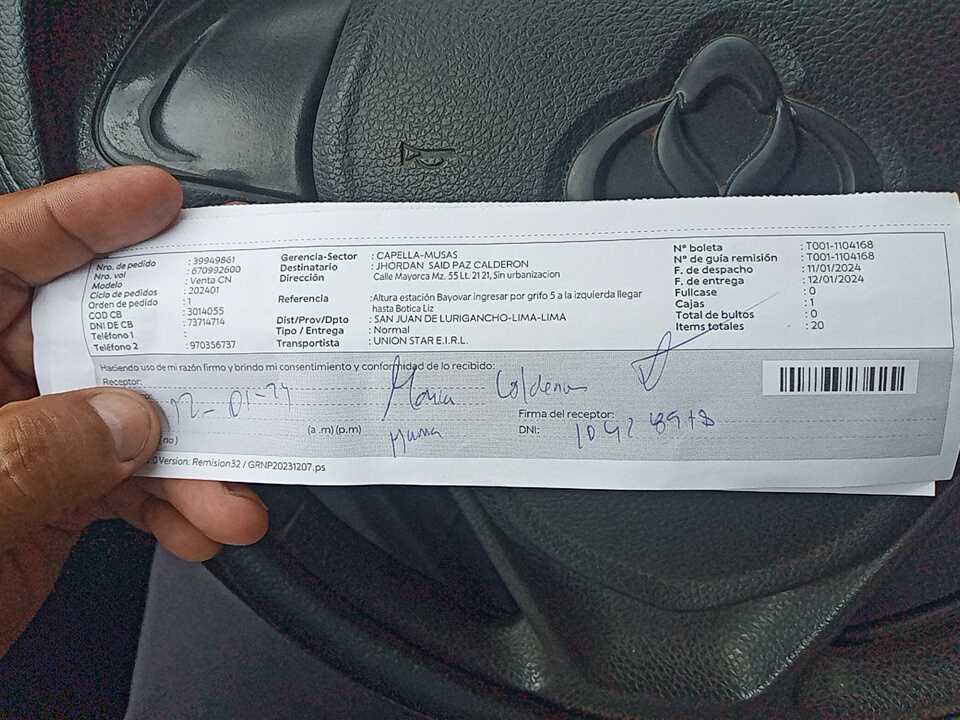 Nro. de pedido : 39949861
Nro. vol : 670992600
Modelo : Venta CN
Ciclo de pedidos : 202401
Orden de pedido : 1
COD CB : 3014055
DNI DE CB : 73714714
Teléfono 1 :
Teléfono 2 : 970356737
Gerencia-Sector : CAPELLA-MUSAS
Destinatario : JHORDAN SAID PAZ CALDERON
Dirección : Calle Mayorca Mz. 55 Lt. 21 21, Sin urbanizacion
Referencia : Altura estación Bayovar ingresar por grifo 5 a la izquierda llegar
hasta Botica Liz
Dist/Prov/Dpto : SAN JUAN DE LURIGANCHO-LIMA-LIMA
Tipo / Entrega : Normal
Transportista : UNION STAR E.I.R.L.
N° boleta : T001-1104168
N° de guía remisión : T001-1104168
F. de despacho : 11/01/2024
F. de entrega : 12/01/2024
Fullcase : 0
Cajas : 1
Total de bultos : 0
Items totales : 20
Haciendo uso de mi razón firmo y brindo mi consentimiento y conformidad de lo recibido:
Receptor:
12-01-24
Maria Calderon
(a .m) (p.m)
Mama
Firma del receptor:
DNI:
.0 Version: Remision32 / GRNP20231207.ps